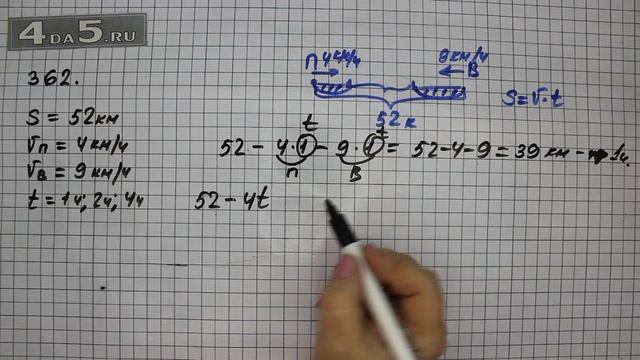 4 DA 5.RU
362.
П 4 км/ч
9 км/ч
В
52 к
S = V · t
S = 52 км
Vп = 4 км/ч
Vв = 9 км/ч
t = 1ч; 2ч; 4ч
t t
52 - 4 · 1 - 9 · 1 = 52 - 4 - 9 = 39 км - 1ч
п в
52 - 4t